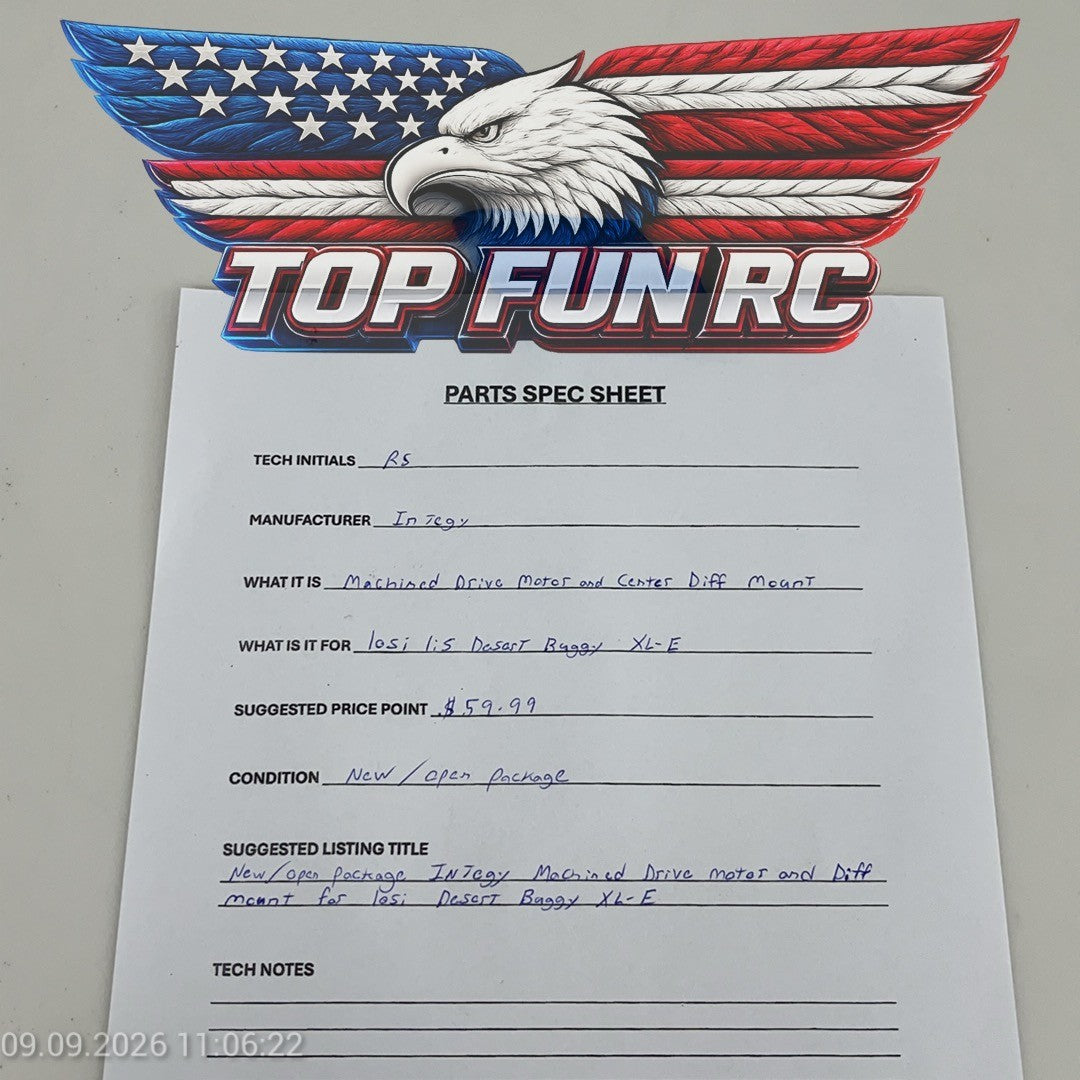 TOP FUN RC
PARTS SPEC SHEET
TECH INITIALS RS
MANUFACTURER InTegy
WHAT IT IS Machined Drive Motor and Center Diff Mount
WHAT IS IT FOR losi 1:5 Desert Buggy XL-E
SUGGESTED PRICE POINT $59.99
CONDITION New/open package
SUGGESTED LISTING TITLE
New/open package InTegy Machined Drive motor and Diff
mount for losi Desert Buggy XL-E
TECH NOTES
09.09.2026 11:06:22